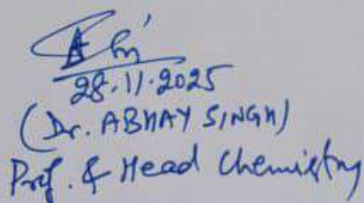 28.11.2025
(Dr. ABHAY SINGH)
Prof. & Head Chemistry